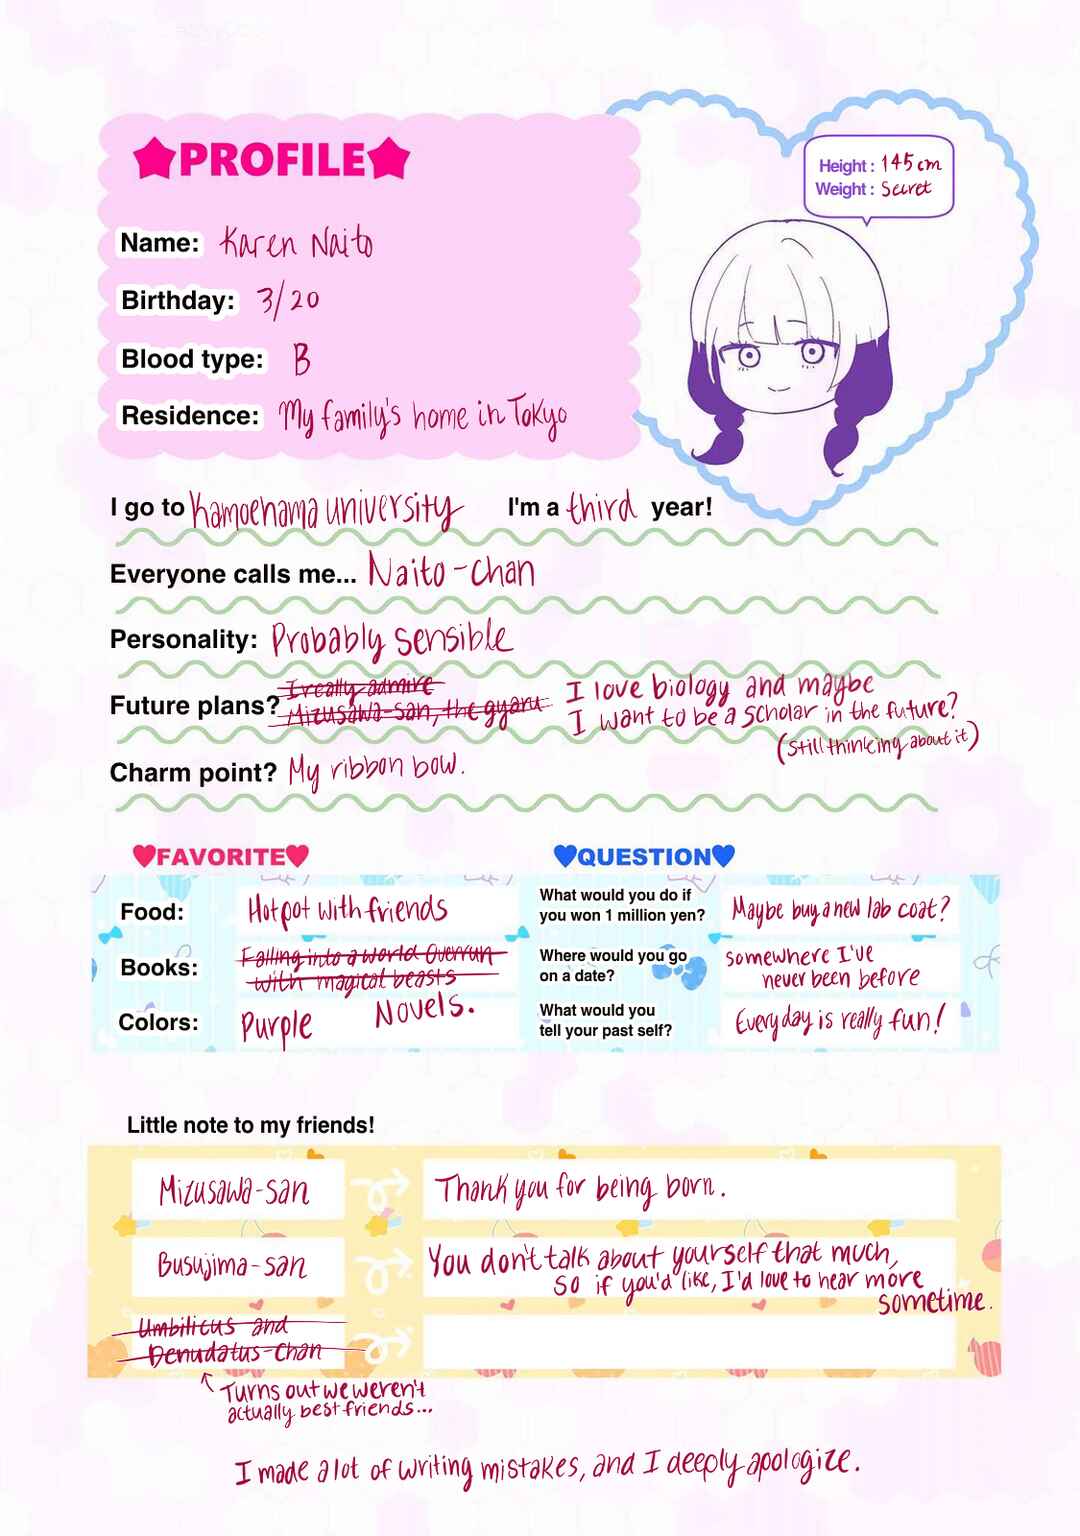 ★PROFILE★
Height: 145cm
Weight: Secret
Name: Karen Naito
Birthday: 3/20
Blood type: B
Residence: My family's home in Tokyo
I go to Kamoehama university I'm a third year!
Everyone calls me... Naito-chan
Personality: Probably sensible
Future plans? I really admire
Mizusawa-san, the gyaru
I love biology and maybe
I want to be a scholar in the future?
(still thinking about it)
Charm point? My ribbon bow.
♥FAVORITE♥
Food: Hotpot with friends
Books: Falling into a world overrun
with magical beasts
Novels.
Colors: Purple
♥QUESTION♥
What would you do if
you won 1 million yen?
Maybe buy a new lab coat?
Where would you go
on a date?
somewhere I've
never been before
What would you
tell your past self?
Everyday is really fun!
Little note to my friends!
Mizusawa-san
Thank you for being born.
Busujima-san
You don't talk about yourself that much,
so if you'd like, I'd love to hear more
sometime.
Umbilicus and
Denudatus-chan
Turns out we weren't
actually best friends...
I made a lot of writing mistakes, and I deeply apologize.